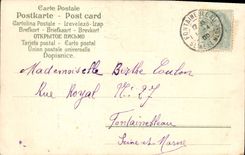 Carte Postale
Postkarte - Post card
Cartolina Postale - Levelező-Lap
Brefkort - Briefkaart - Brevkort
ОТКРЫТОЕ ПИСЬМО
Tarjeta postal - Carta postal
Union postale universelle
Dopisnice.
Mademoiselle Berthe Toulon
Rue Royal Nº 27
Fontainebleau
Seine et Marne